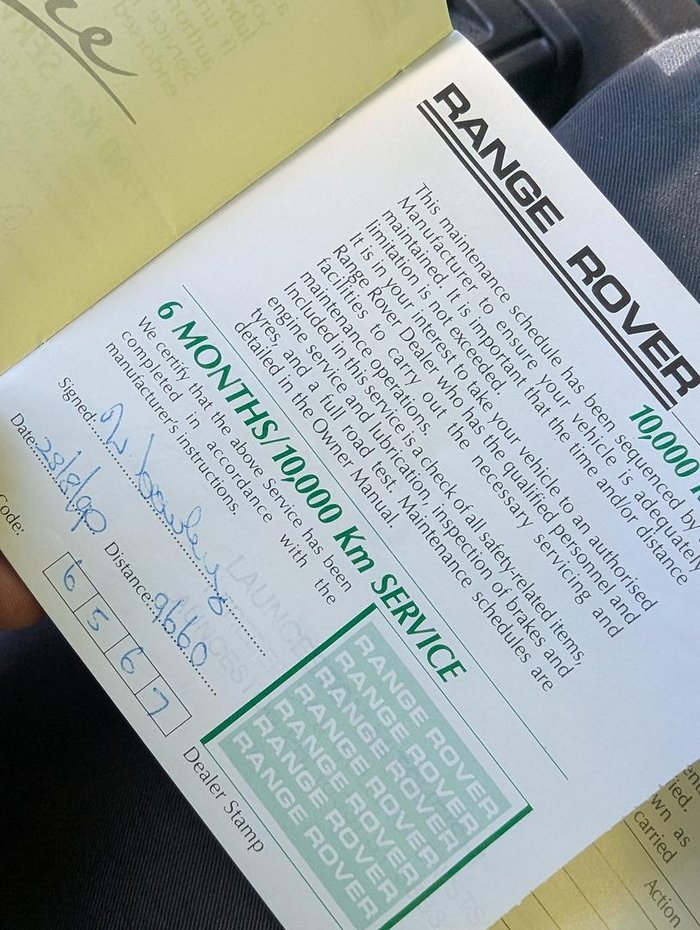 RANGE ROVER
10,000
This maintenance schedule has been sequenced by
Manufacturer to ensure your vehicle is adequately
maintained. It is important that the time and/or distance
limitation is not exceeded.
It is in your interest to take your vehicle to an authorised
Range Rover Dealer who has the qualified personnel and
facilities to carry out the necessary servicing and
maintenance operations.
Included in this service is a check of all safety-related items,
engine service and lubrication, inspection of brakes and
tyres, and a full road test. Maintenance schedules are
detailed in the Owner Manual.
6 MONTHS/10,000 Km SERVICE
We certify that the above Service has been
completed in accordance with the
manufacturer's instructions.
Signed:
Date: 28/8/90 Distance: 9660
Code: 6567
Dealer Stamp
RANGE ROVER
RANGE ROVER
RANGE ROVER
RANGE ROVER
RANGE ROVER
RANGE ROVER
wn as
carried
Action